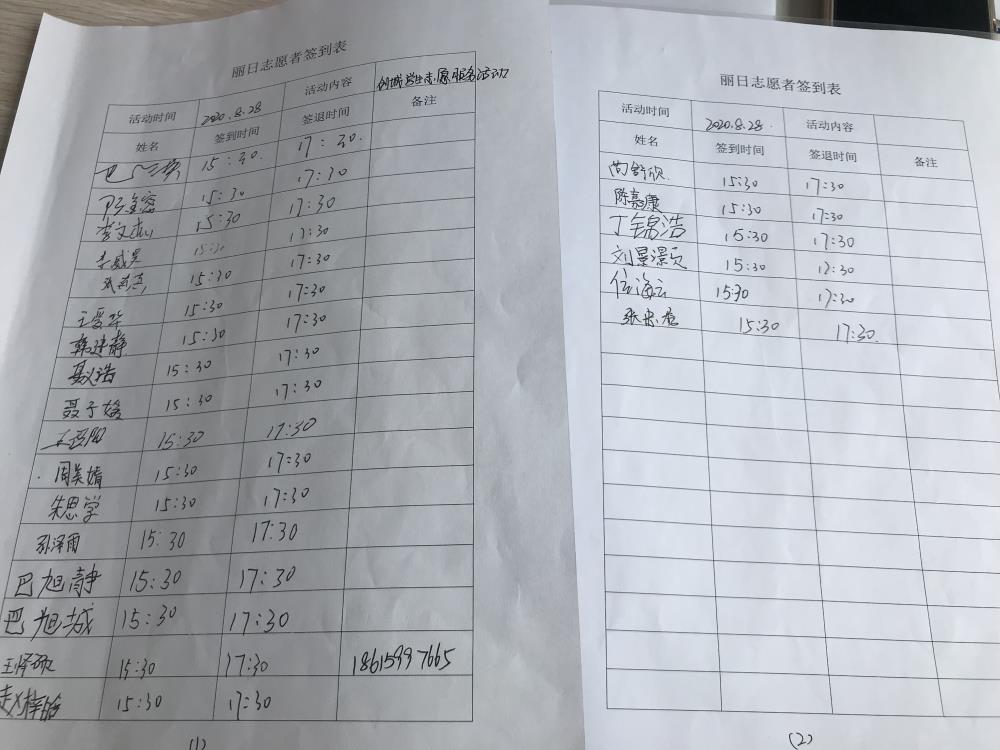 丽日志愿者签到表
活动时间 2020.8.28 活动内容 创城学生志愿服务活动
姓名 签到时间 签退时间 备注
15:30. 17:30.
15:30 17:30
15:30 17:30
15:30 17:30
15:30 17:30
王爱华 15:30 17:30
韩建静 15:30 17:30
聂义浩 15:30 17:30
聂子嫣 15:30 17:30
15:30 17:30
周美婧 15:30 17:30
朱思学 15:30 17:30
孙泽雨 15:30 17:30
巴旭静 15:30 17:30
巴旭城 15:30 17:30
15:30 17:30 18615997665
赵梓皓 15:30 17:30
(1)
丽日志愿者签到表
活动时间 2020.8.28. 活动内容
姓名 签到时间 签退时间 备注
尚舒欣 15:30 17:30
陈嘉康 15:30 17:30
丁锦浩 15:30 17:30
15:30 17:30
任海云 15:30 17:30
15:30 17:30.
(2)